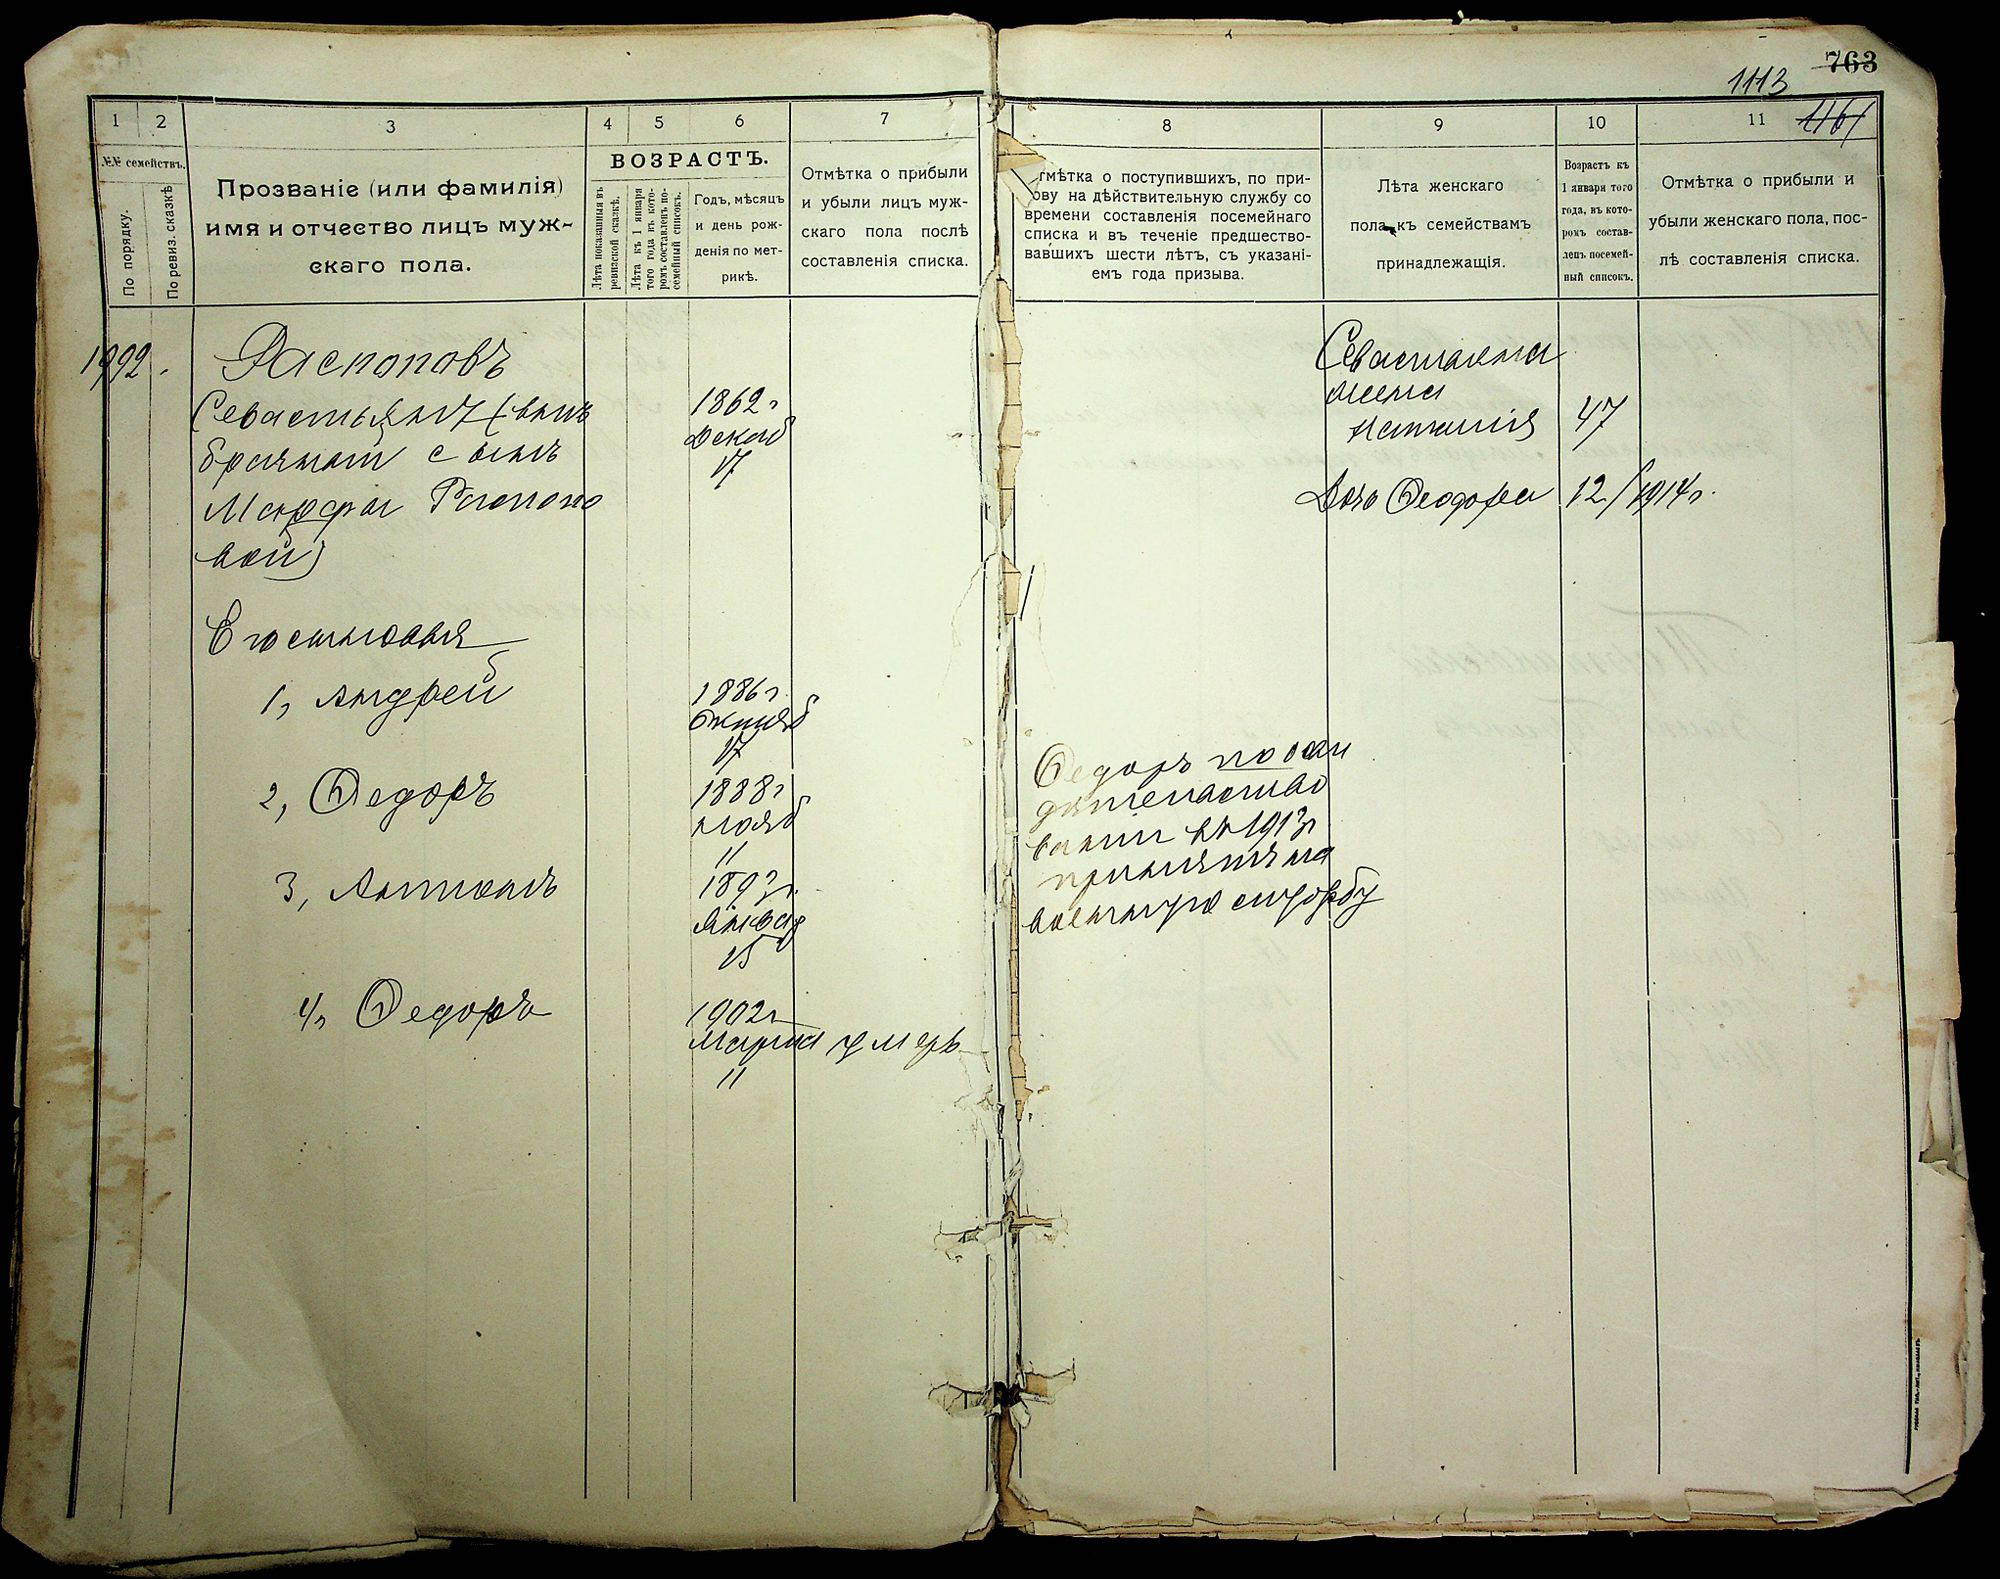 763
1113
1161
1
2
3
4
5
6
7
№№ семействъ.
По порядку.
По ревиз. сказкѣ
Прозваніе (или фамилія)
имя и отчество лицъ муж-
скаго пола.
ВОЗРАСТЪ.
Лѣта показанныя въ
ревизской сказкѣ.
Лѣта къ 1 января
того года въ кото-
ромъ составленъ по-
семейный списокъ.
Годъ, мѣсяцъ
и день рож-
денія по мет-
рикѣ.
Отмѣтка о прибыли
и убыли лицъ муж-
скаго пола послѣ
составленія списка.
8
9
10
11
тмѣтка о поступившихъ, по при-
ову на дѣйствительную службу со
времени составленія посемейнаго
списка и въ теченіе предшество-
вавшихъ шести лѣтъ, съ указані-
емъ года призыва.
Лѣта женскаго
пола, къ семействамъ
принадлежащія.
Возрастъ къ
1 января того
года, въ кото-
ромъ состав-
ленъ посемей-
ный списокъ.
Отмѣтка о прибыли и
убыли женскаго пола, пос-
лѣ составленія списка.
1992.
Распоповъ
Севастьянъ (внѣ
брачный сынъ
Марфы Распопо
вой)
1862 г
Декаб
17
Его сыновья
1, Андрей
1886 г.
Октяб
17
2, Федоръ
1888 г
Нояб
11
3, Антонъ
1893 г.
Январ
15
4, Федоръ
1902 г
Марта умеръ
11
Федоръ по
въ 1913 г
принятъ на
военную службу
Севастьяна
жена
Наталія 47
Дочь Феодора 12/1914 г.